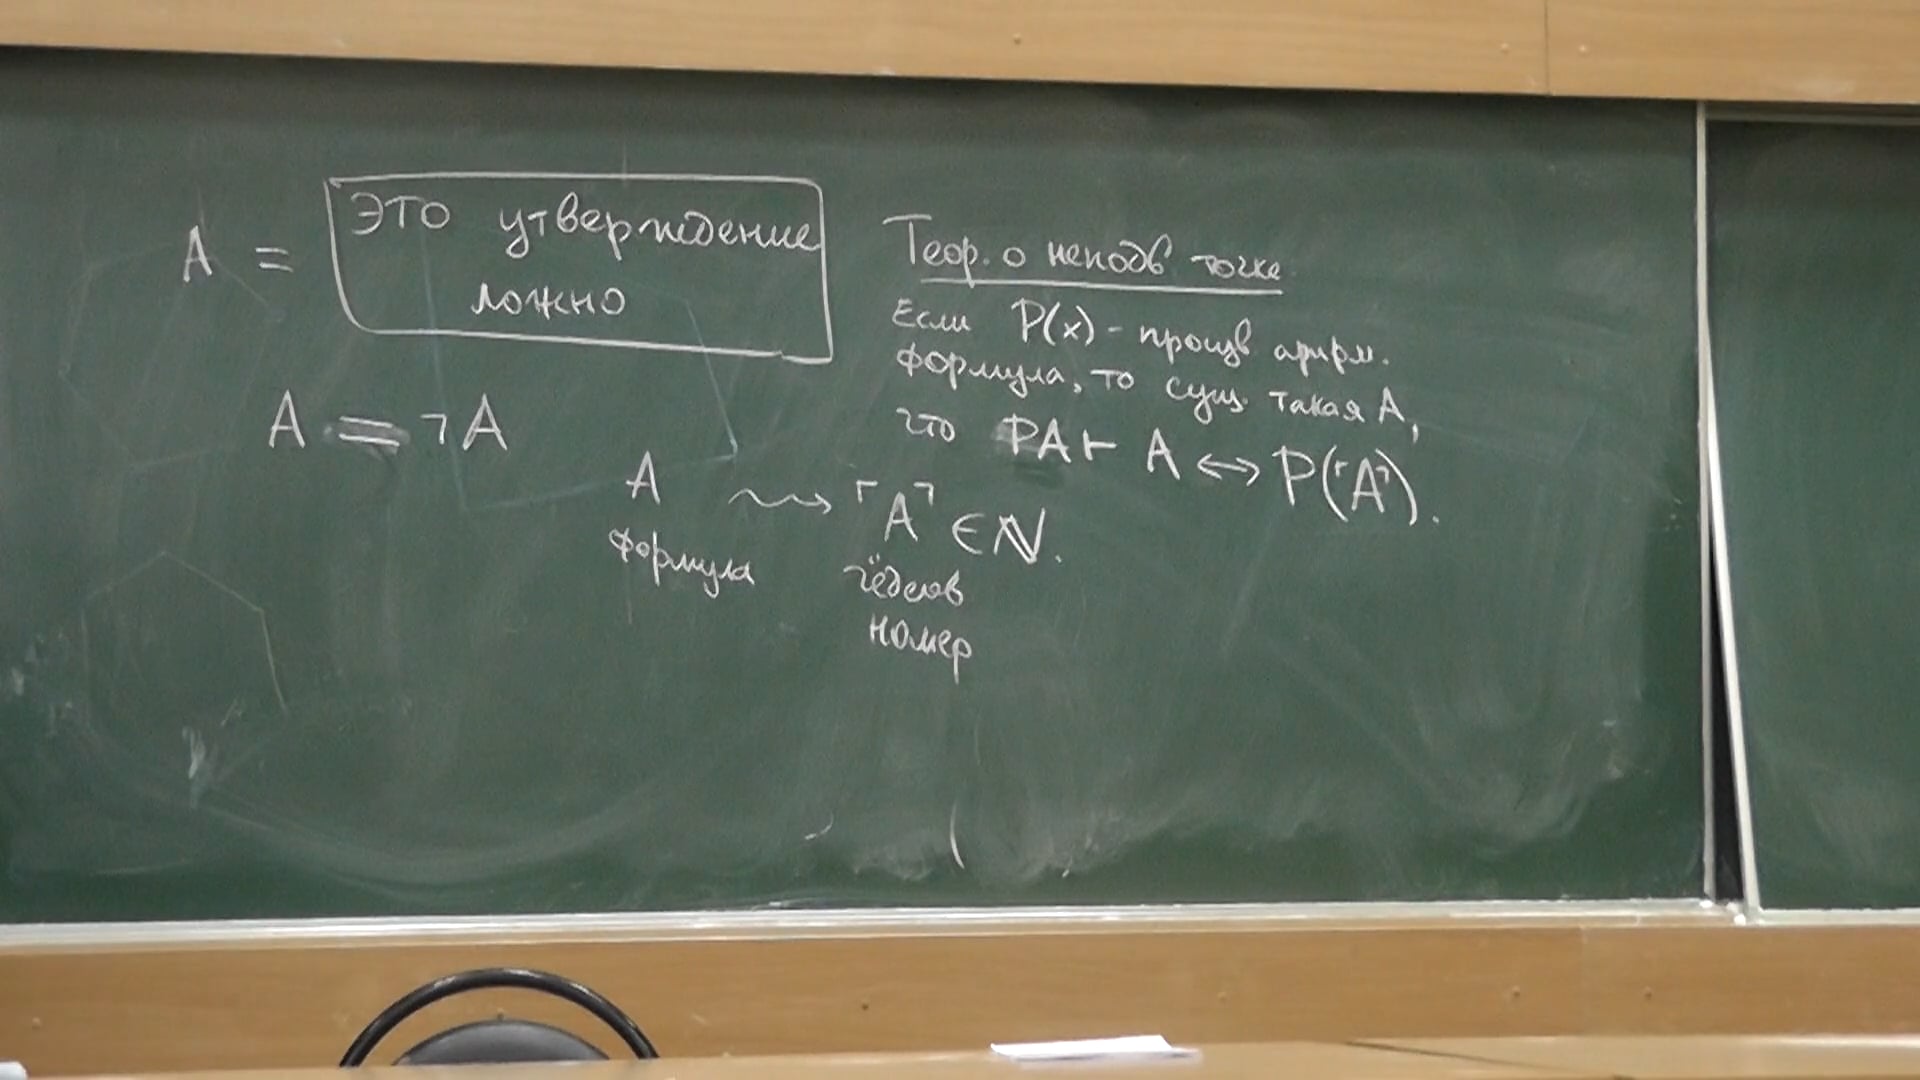 A = это утверждение
ложно
A = ¬A
A ⇝ ⌜A⌝ ∈ ℕ.
формула гёделев
номер
Теор. о неподв точке
Если P(x) - произв арифм.
формула, то сущ. такая A,
что PA ⊢ A ↔ P(⌜A⌝).